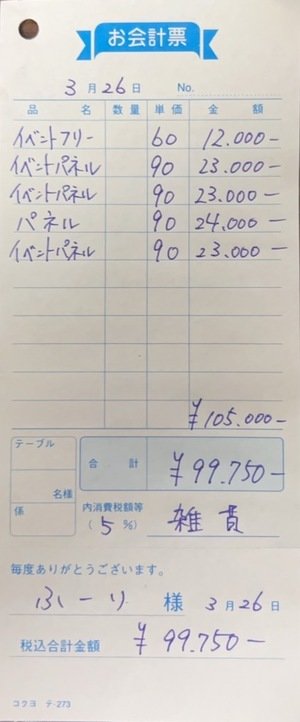 お会計票
3月26日 No.
品名 数量 単価 金額
イベントフリー 60 12.000-
イベントパネル 90 23.000-
イベントパネル 90 23.000-
パネル 90 24.000-
イベントパネル 90 23.000-
¥105.000-
テーブル
名様
係
合計 ¥99.750-
内消費税額等
(5%) 雑費
毎度ありがとうございます。
ふーり 様 3月26日
税込合計金額 ¥99.750-
コクヨ テ-273